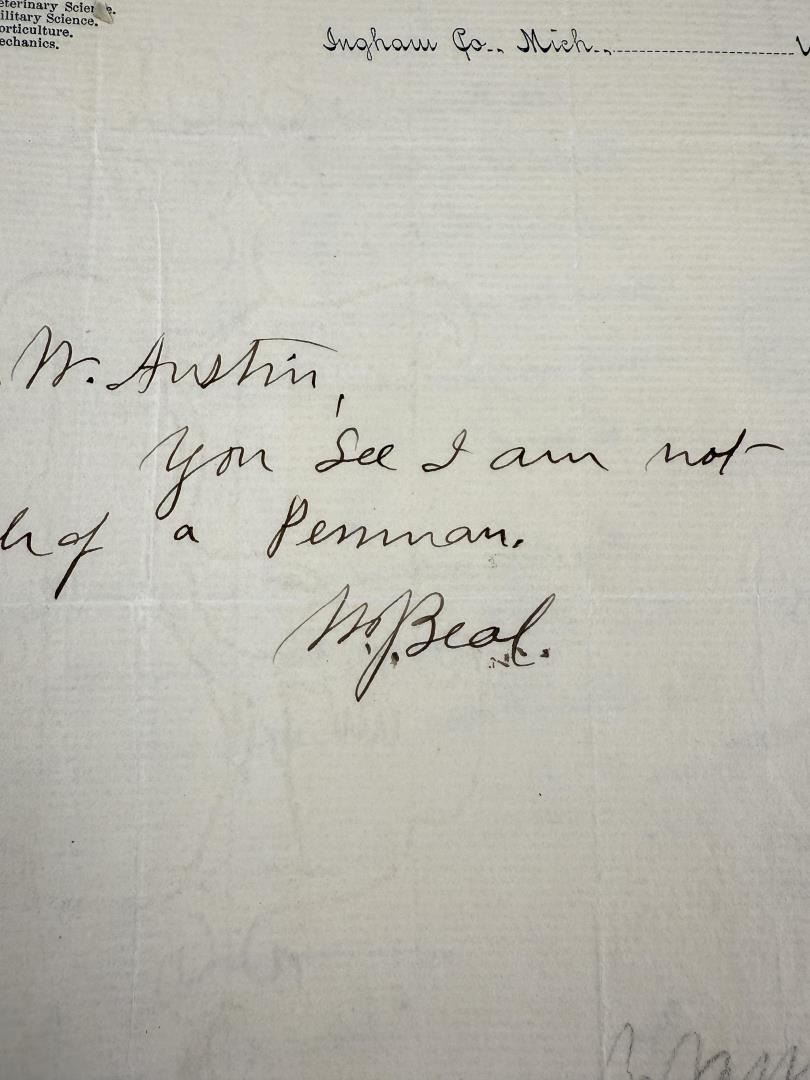 eterinary Science.
ilitary Science.
orticulture.
echanics.
Ingham Co., Mich.,
W. Austin,
You See I am not
ch of a Penman.
W.J. Beal.